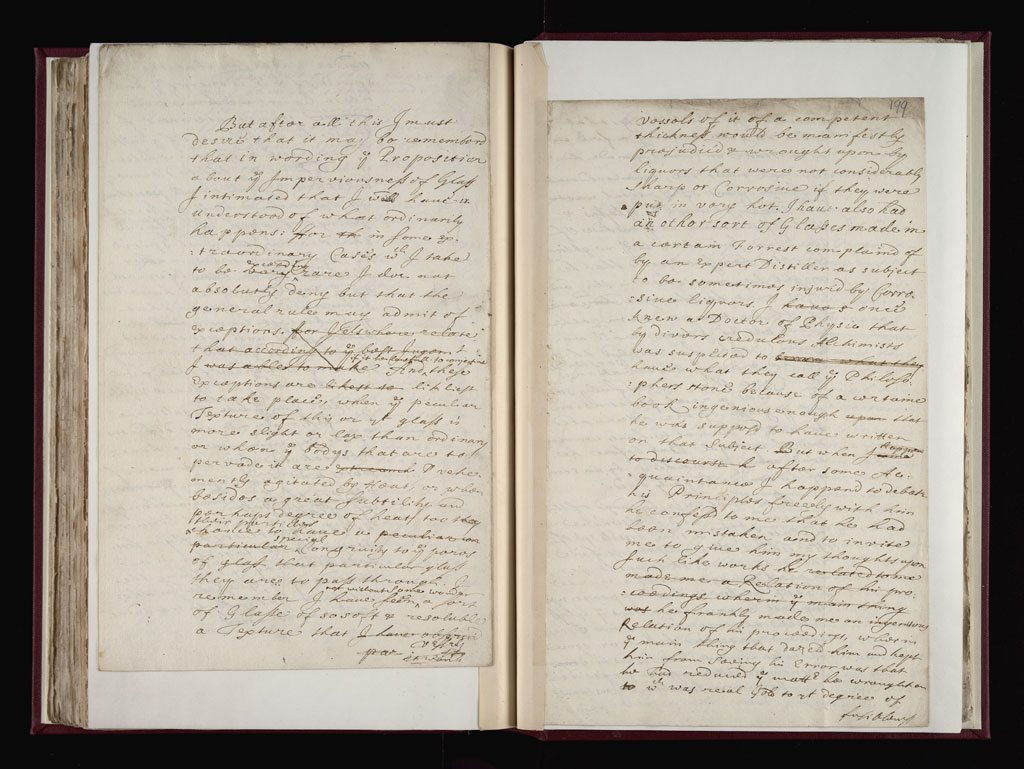 But after all this I must
desire that it may be rememberd
that in wording ye Proposition
about ye Imperviousness of Glass
I intimated that I would have it
understood of what ordinarily
happens: for th in some ex
:traordinary Cases wch I take
to be very exceeding rare I doe not
absolutely deny but that the
general rule may admit of
exceptions. for I elsewhere relate
that according to ye best
I was able to make And if it be lawfull to conjecture these
exceptions are likest to likliest
to take place, when ye peculiar
Texture of this or yt glass is
more slight or lax than ordinary
or when ye bodys that are to
pervade it are vehe-
mently agitated by Heat, or when
besides a great subtility and
perhaps degree of heat too they
their particles
chance to have a peculiar
particular special Congruity to ye pores
of glass that particular glass
they are to pass through. I
remember I have seen not without some wonder a sort
of Glasse of so soft & resoluble
a Texture that I have observd
par
vessels
199
vessels of it of a competent
thickness would be manifestly
prejudic'd & wrought upon by
liquors that were not considerably
sharp or Corrosive if they were
put in very hot. I have also had
as an other sort of Glasses made in
a certain Forrest complaind of
by an expert Distiller as subject
to be sometimes injurd by Corro-
:sive liquors. I have s once
knew a Doctor of Physic that
by divers credulous Alchimists
was suspected to know what they
have what they call ye Philoso
:phers stone because of a certaine
book ingenious enough upon that
he was supposd to have written
on that Subject. But when I
to discourse h after some Ac-
:quaintance I happend to debate
his Principles freely with him
he confesd to me that he had
been mistaken and to invite
me to give him my thoughts upon
such like works he related to me
made me a Relation of his pro-
:ceedings wherin ye main thing
was he frankly made me an ingenious
Relation of his proceedings, wherin
ye main thing that dazed him and kept
him from seeing his Error was that
he had reduced ye matter he wrought on
to wch was real Gold to yt degree of
fusibleness